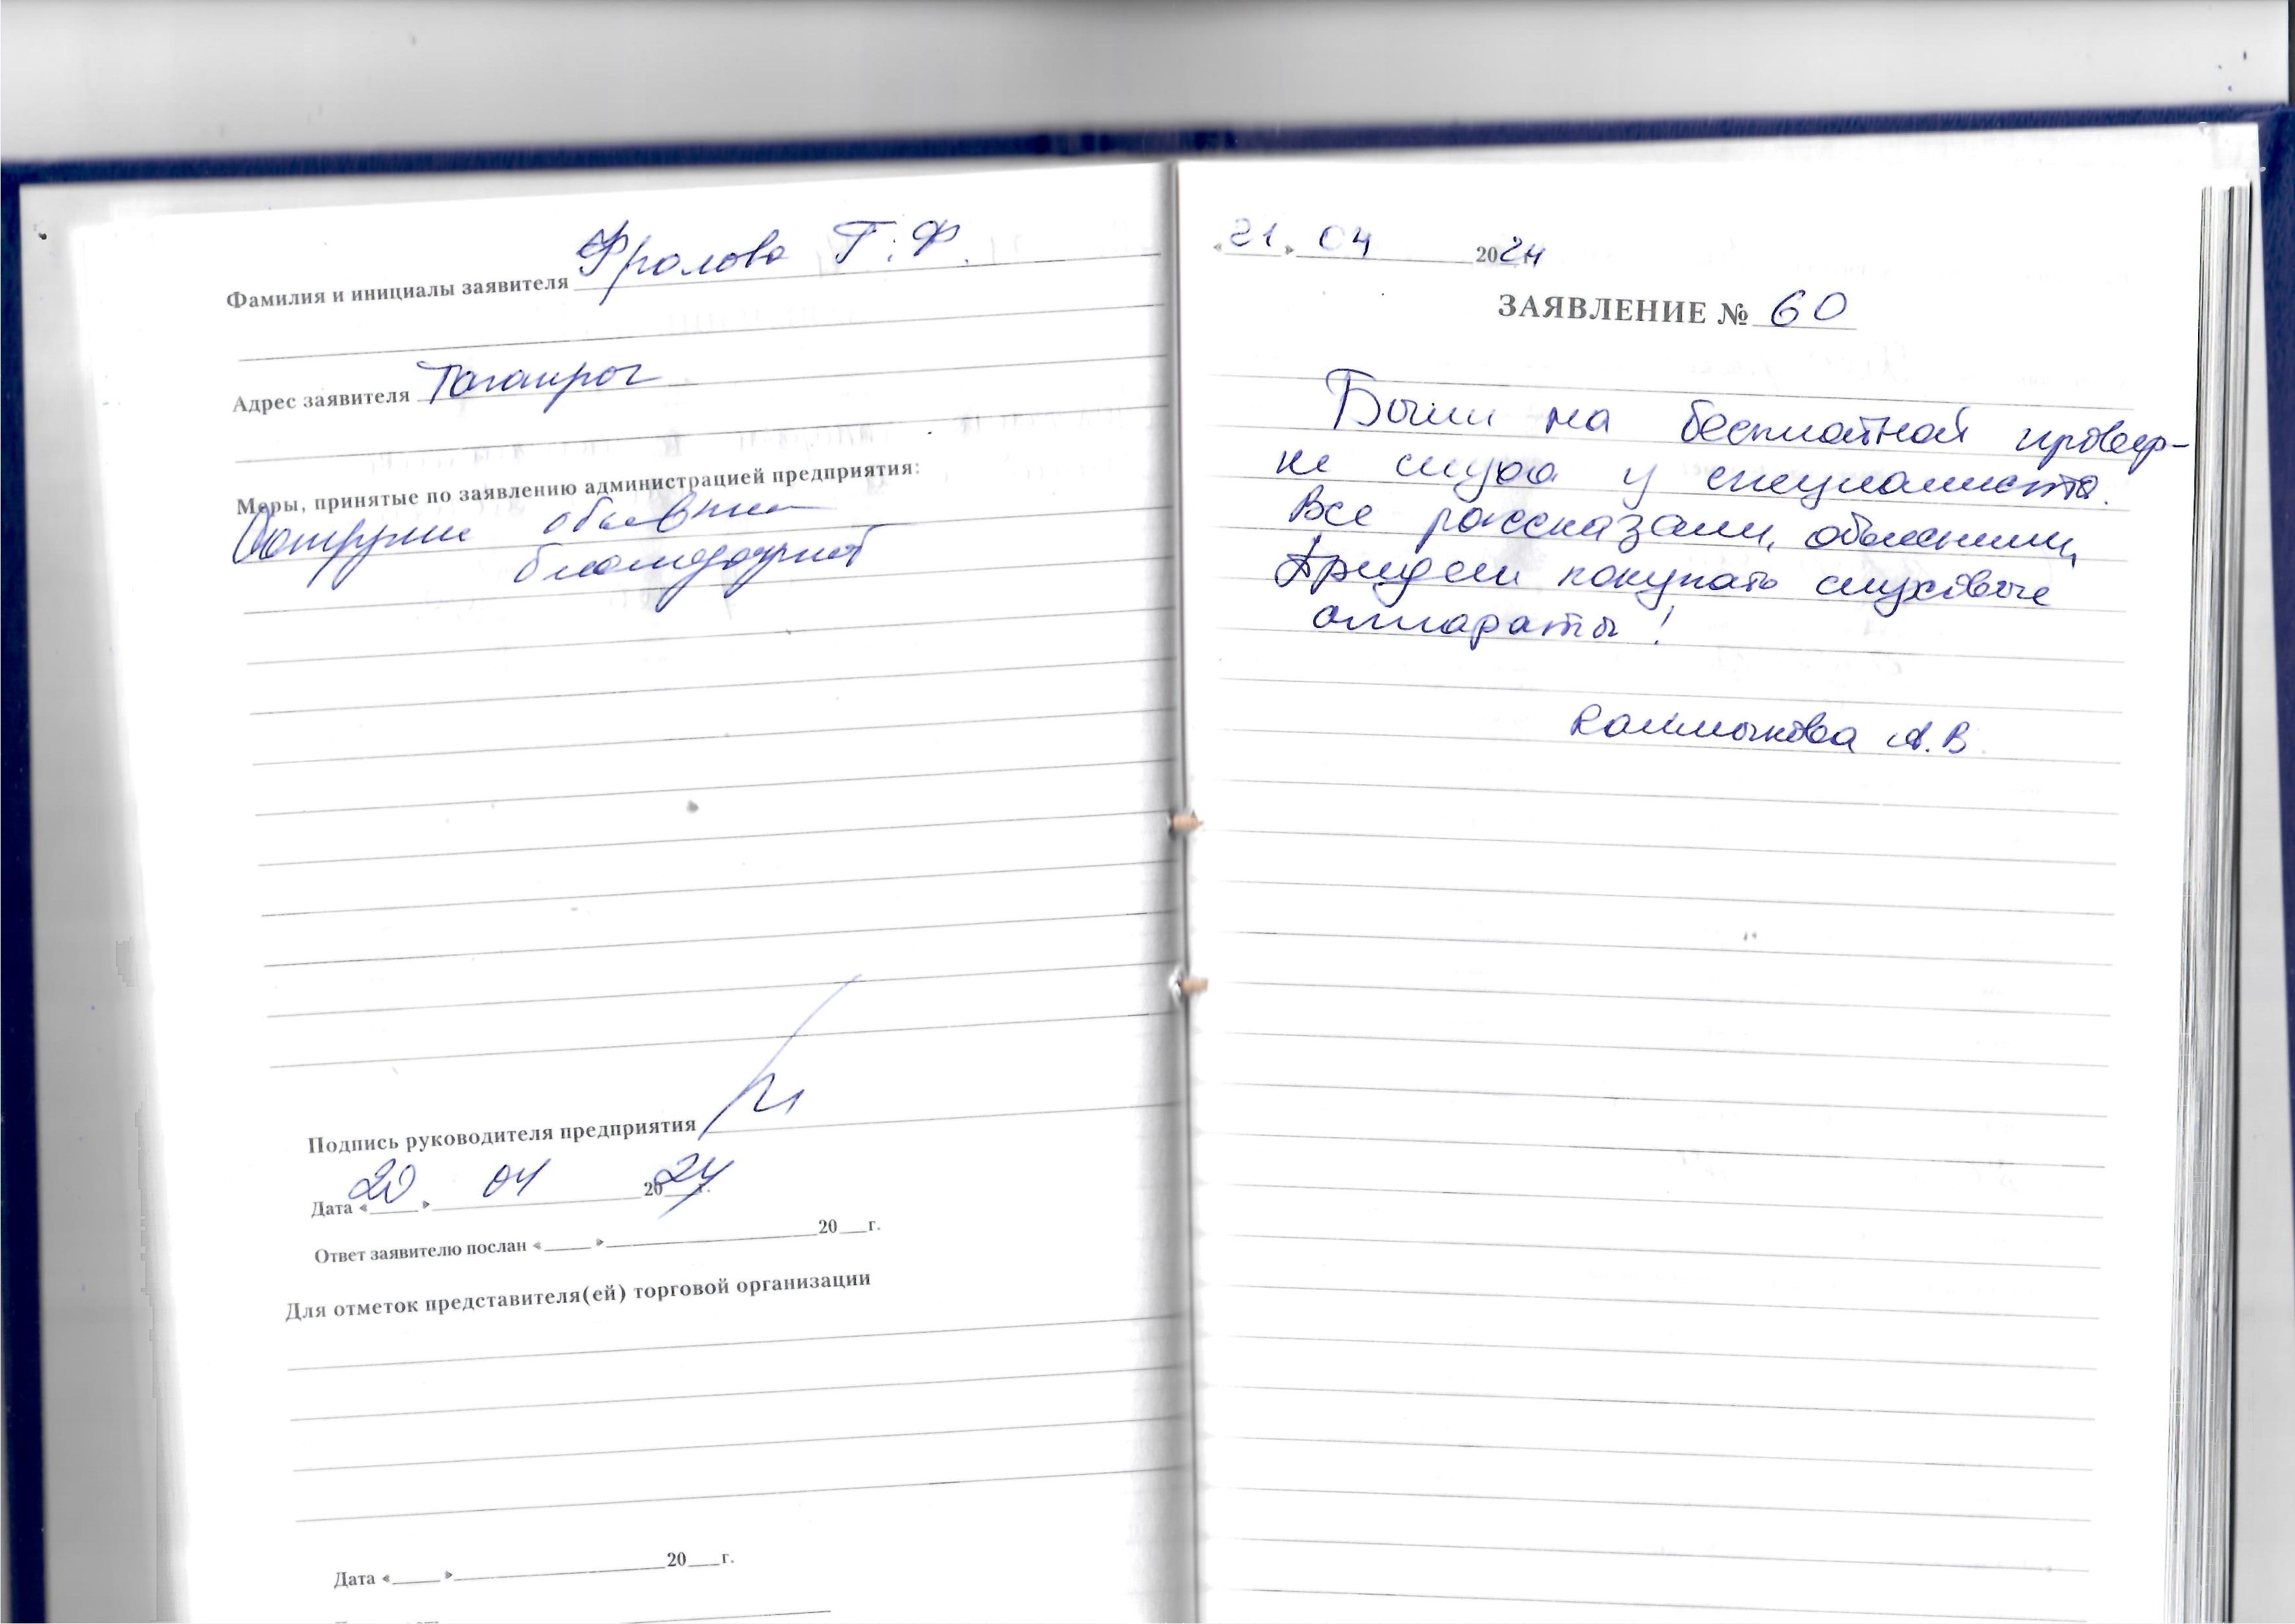 Фамилия и инициалы заявителя Фролова Г. Ф.
Адрес заявителя Таганрог
Меры, принятые по заявлению администрацией предприятия:
объявить
благодарность
Подпись руководителя предприятия
Дата «20» 04 2024 г.
Ответ заявителю послан «____» ____ 20__г.
Для отметок представителя(ей) торговой организации
Дата «____» ____ 20__г.
«21» 04 2024
ЗАЯВЛЕНИЕ № 60
Были на бесплатной провер-
ке слуха у специалиста.
Все рассказали, объяснили,
Придем покупать слуховые
аппараты!
Калмыкова А. В.